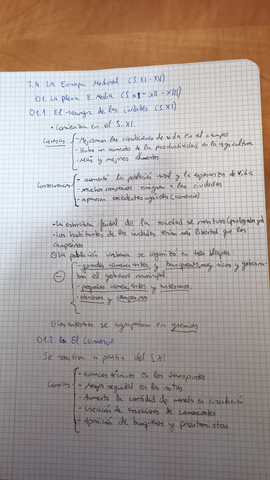 T.4 La Europa Medieval (S.XI-XV)
01. La plena E. Media (S XI - XII - XIII)
01.1 El resurgir de las ciudades (S XI)
• Comienza en el S. XI.
Causas - Mejoran las condiciones de vida en el campo
- Hubo un aumento de la productividad en la agricultura
- Más y mejores alimentos
Consecuencias - aumentó la población rural y la esperanza de vida
- muchos campesinos emigran a las ciudades
- aparecen excedentes agrícolas (comercio)
• La estructura feudal de la sociedad se mantuvo
• Los habitantes de las ciudades tenían más libertad que los
campesinos
La población urbana se organizó en tres bloques
- grandes comerciantes y banqueros, muy ricos y
con el gobierno municipal
- pequeños comerciantes y artesanos.
- obreros y campesinos
Los artesanos se agrupaban en gremios
01.2 El Comercio
Se reactiva a partir del S.XI
Causas - avances técnicos en los transportes
- Mayor seguridad en las rutas
- Aumento la cantidad de moneda en circulación
- Creación de asociaciones de comerciantes
- Aparición de banqueros y prestamistas